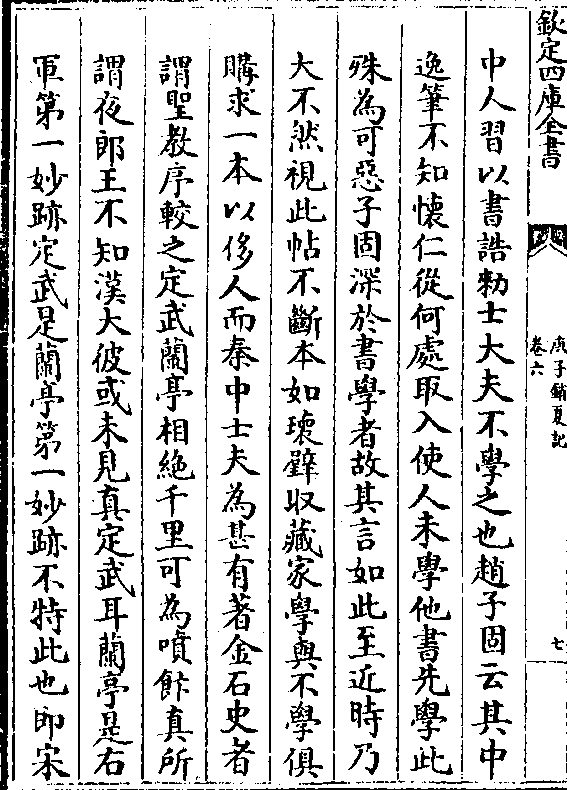 欽定四庫全書
庚子銷夏記
卷六
七
中人習以書誥勑士大夫不學之也趙子固云其中
逸筆不知懷仁從何處取入使人未學他書先學此
殊為可惡子固深於書學者故其言如此至近時乃
大不然視此帖不斷本如瓌璧収藏家學與不學俱
購求一本以侈人而秦中士夫為甚有著金石史者
謂聖教序較之定武蘭亭相絶千里可為噴飯真所
謂夜郎王不知漢大彼或未見真定武耳蘭亭是右
軍第一妙跡定武是蘭亭第一妙跡不特此也即宋